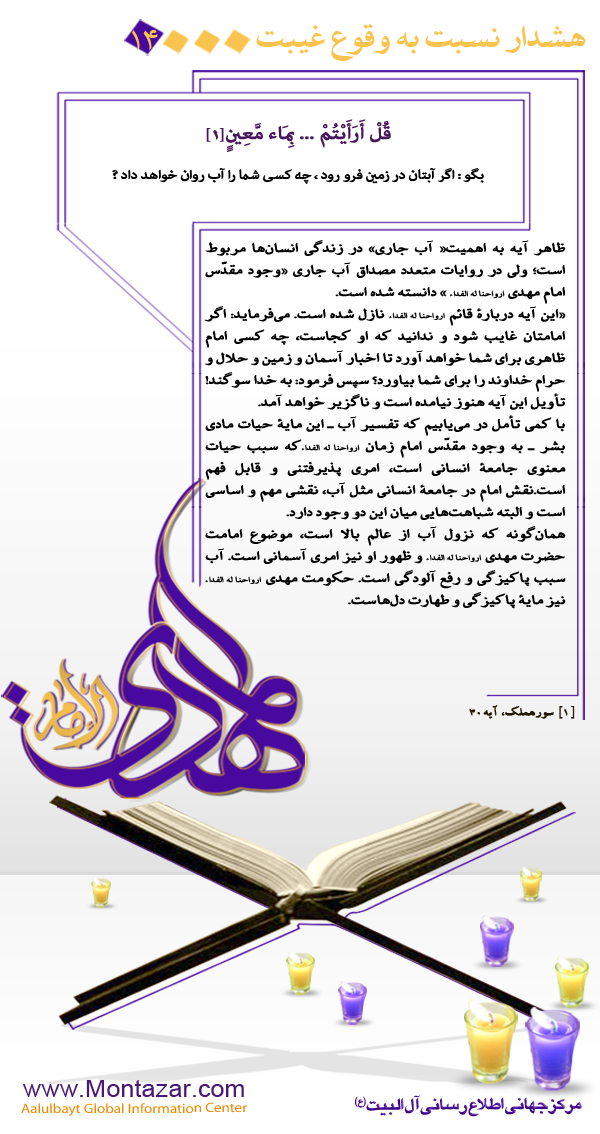 هشدار نسبت به وقوع غیبت
۱۴
قُلْ أَرَأَيْتُمْ ... بِمَاء مَّعِينٍ[۱]
بگو : اگر آبتان در زمین فرو رود ، چه کسی شما را آب روان خواهد داد ?
ظاهر آیه به اهمیت« آب جاری» در زندگی انسان‌ها مربوط
است؛ ولی در روایات متعدد مصداق آب جاری «وجود مقدّس
امام مهدی ارواحنا له الفداء » دانسته شده است.
«این آیه دربارهٔ قائم ارواحنا له الفداء نازل شده است. می‌فرماید: اگر
امامتان غایب شود و ندانید که او کجاست، چه کسی امام
ظاهری برای شما خواهد آورد تا اخبار آسمان و زمین و حلال و
حرام خداوند را برای شما بیاورد؟ سپس فرمود: به خدا سوگند!
تأویل این آیه هنوز نیامده است و ناگزیر خواهد آمد.
با کمی تأمل در می‌یابیم که تفسیر آب ـ این مایهٔ حیات مادی
بشر ـ به وجود مقدّس امام زمان ارواحنا له الفداء که سبب حیات
معنوی جامعهٔ انسانی است، امری پذیرفتنی و قابل فهم
است.نقش امام در جامعهٔ انسانی مثل آب، نقشی مهم و اساسی
است و البته شباهت‌هایی میان این دو وجود دارد.
همان‌گونه که نزول آب از عالم بالا است، موضوع امامت
حضرت مهدی ارواحنا له الفداء و ظهور او نیز امری آسمانی است. آب
سبب پاکیزگی و رفع آلودگی است. حکومت مهدی ارواحنا له الفداء
نیز مایهٔ پاکیزگی و طهارت دل‌هاست.
[۱] سوره‌ملک، آیه ۳۰
الإمام
المهدي
www.Montazar.com
Aalulbayt Global Information Center
مرکز جهانی اطلاع رسانی آل البیت (ع)